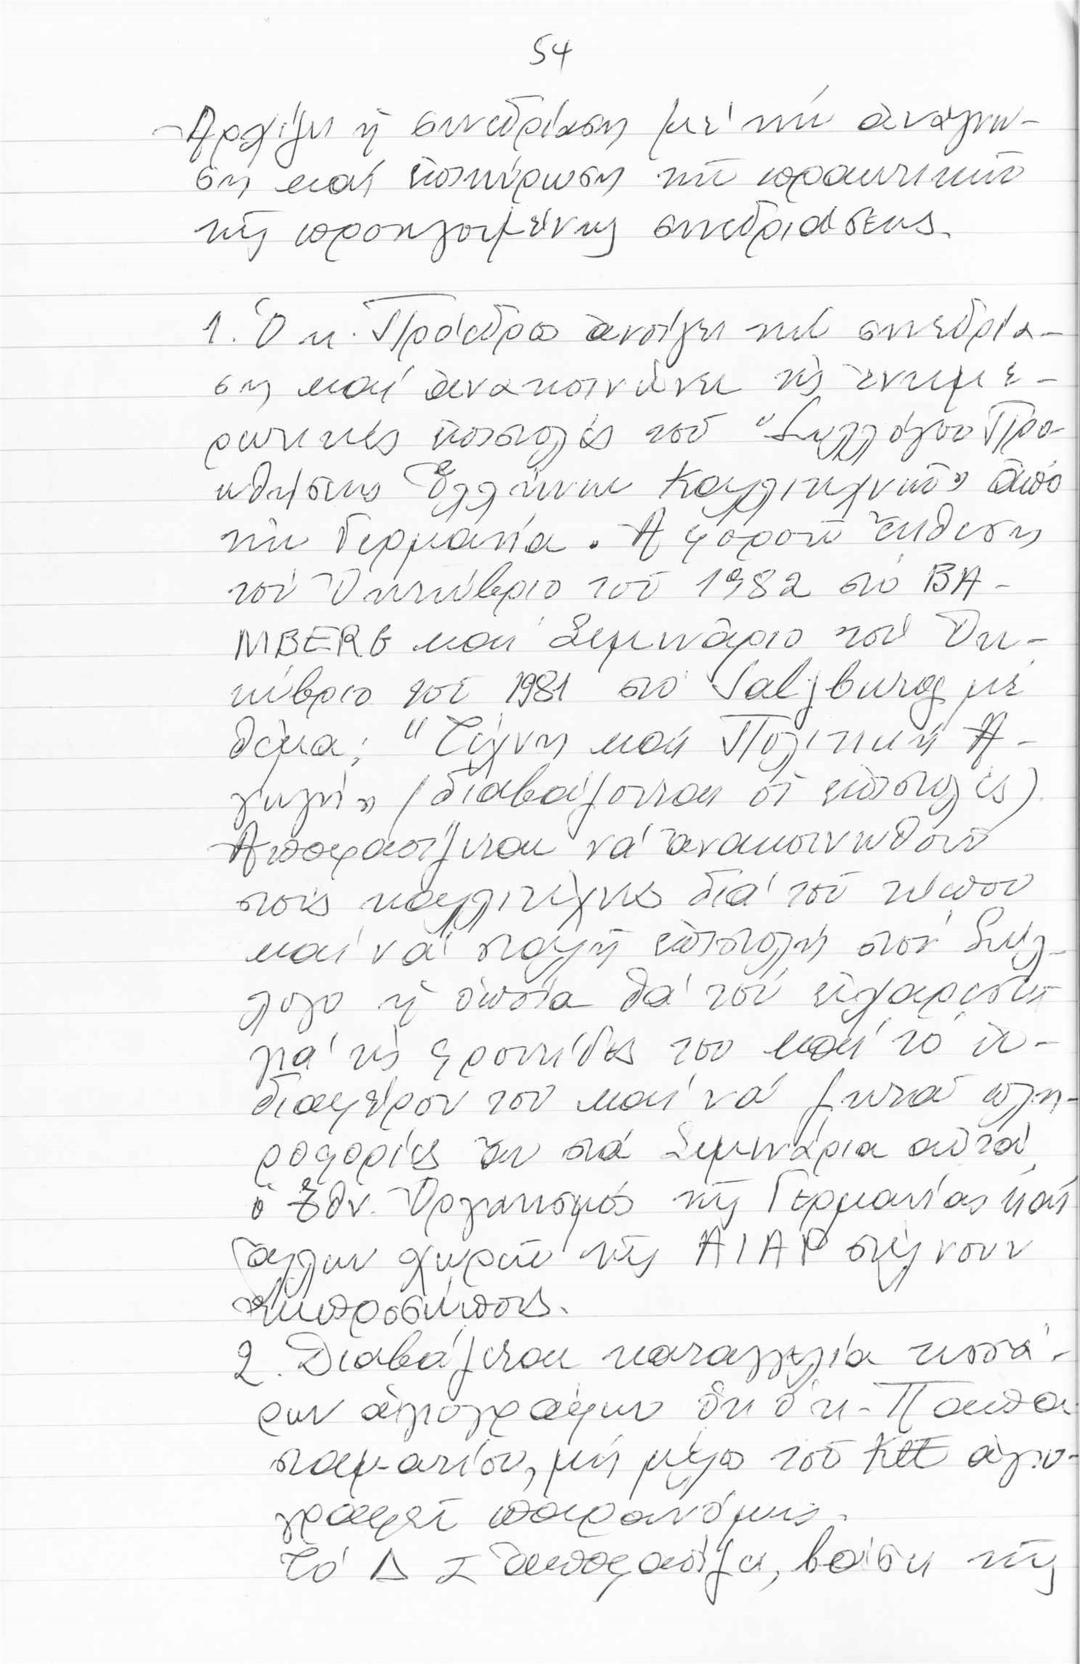 54
Ἀρχίζει ἡ συνεδρίαση μέ τήν ἀνάγνω-
ση καί ἐπικύρωση τῶν πρακτικῶν
τῆς προηγουμένης συνεδριάσεως.
1. Ὁ κ. Πρόεδρος ἀνοίγει τήν συνεδρία-
ση καί ἀνακοινώνει τίς ἐνημε-
ρωτικές ἐπιστολές τοῦ "Συλλόγου Προ-
ωθήσεως Ἑλλήνων Καλλιτεχνῶν" ἀπό
τήν Γερμανία. Ἀφοροῦν ἔκθεση
τόν Ὀκτώβριο τοῦ 1982 στό BA-
MBERG καί Σεμινάριο τόν Ὀκ-
τώβριο τοῦ 1981 στό Salzburg μέ
θέμα: "Τέχνη καί Πολιτική Ἀ-
γωγή" (διαβάζονται οἱ ἐπιστολές).
Ἀποφασίζεται νά ἀνακοινωθοῦν
στούς καλλιτέχνες διά τοῦ τύπου
καί νά σταλῆ ἐπιστολή στόν Σύλ-
λογο ἡ ὁποία θά τόν εὐχαριστεῖ
γιά τίς φροντίδες του καί τό ἐν-
διαφέρον του καί νά ζητᾶ πλη-
ροφορίες ἄν στά Σεμινάρια αὐτά
ὁ Ἐθν. Ὀργανισμός τῆς Γερμανίας καί
ἄλλων χωρῶν τῆς AIAP στέλνουν
ἐκπροσώπους.
2. Διαβάζεται καταγγελία τεσσά-
ρων ἁγιογράφων ὅτι ὁ κ. Παπα-
σταματίου, μή μέλος τοῦ ΚΕΕ ἁγιο-
γραφεῖ παρανόμως.
Τό Δ Σ ἀποφασίζει, βάσει τῆς